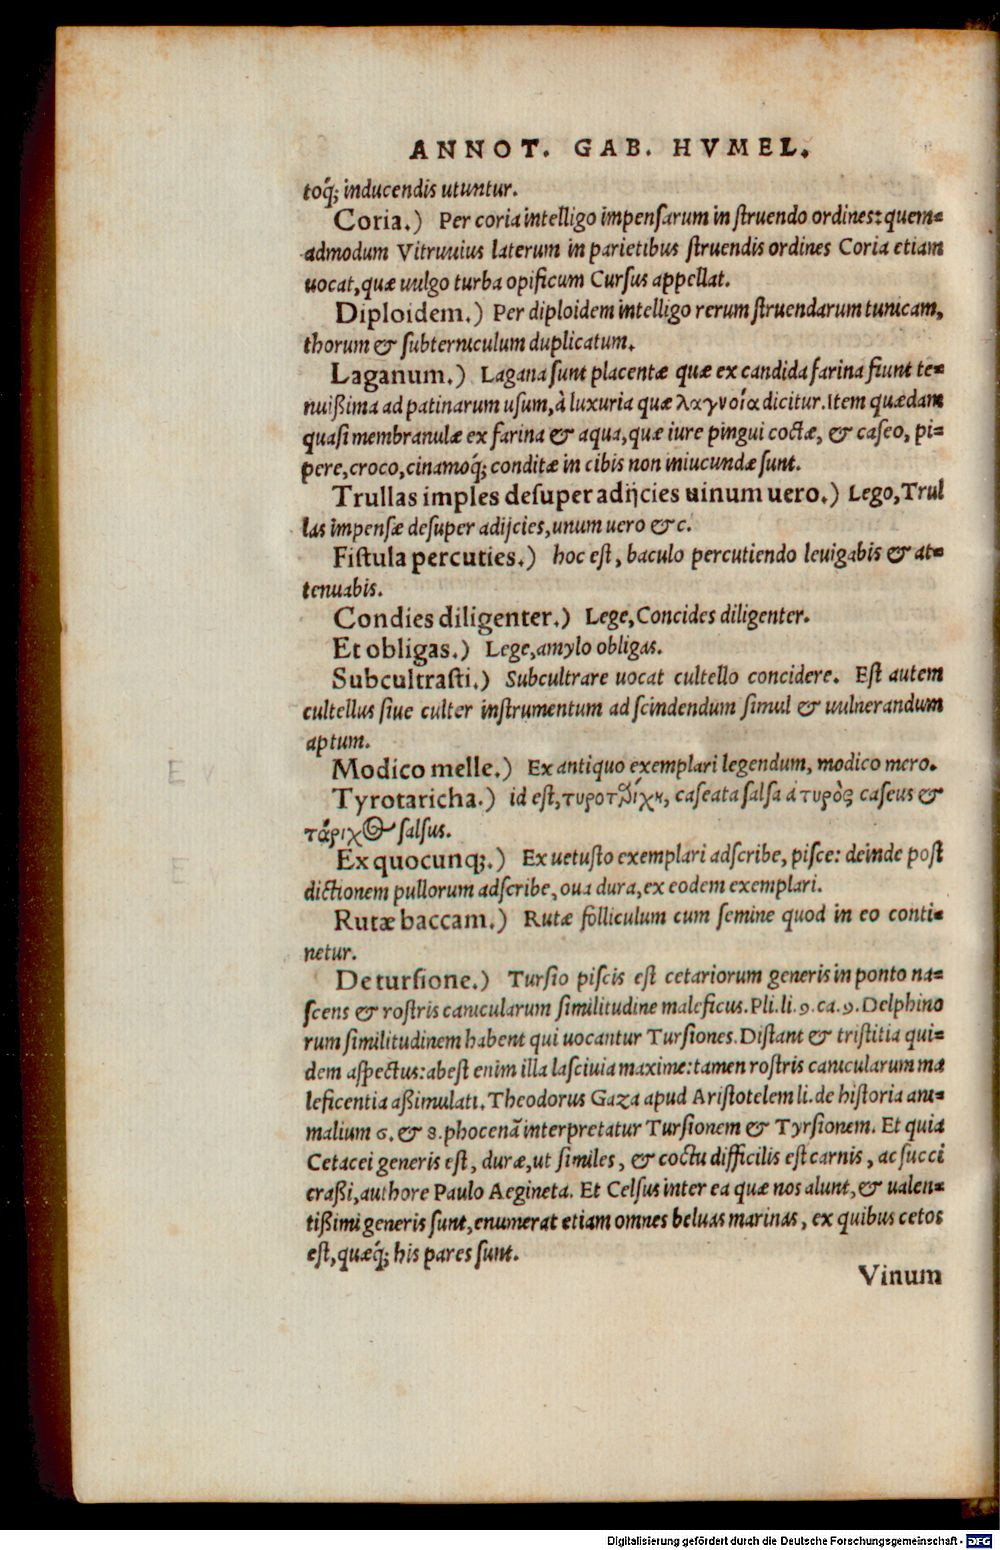 ANNOT. GAB. HVMEL.
toq́; inducendis utuntur.
Coria.) Per coria intelligo impensarum in struendo ordines: quem=
admodum Vitruuius laterum in parietibus struendis ordines Coria etiam
uocat, quæ uulgo turba opificum Cursus appellat.
Diploidem.) Per diploidem intelligo rerum struendarum tunicam,
thorum & subterniculum duplicatum.
Laganum.) Lagana sunt placentæ quæ ex candida farina fiunt te=
nuißima ad patinarum usum, à luxuria quæ λαγνοία dicitur. Item quædam
quasi membranulæ ex farina & aqua, quæ iure pingui coctæ, & caseo, pi=
pere, croco, cinamoq́; conditæ in cibis non iniucundæ sunt.
Trullas imples desuper adijcies uinum uero.) Lego, Trul
las impensæ desuper adijcies, unum uero & c.
Fistula percuties.) hoc est, baculo percutiendo leuigabis & at=
tenuabis.
Condies diligenter.) Lege, Concides diligenter.
Et obligas.) Lege, amylo obligas.
Subcultrasti.) Subcultrare uocat cultello concidere. Est autem
cultellus siue culter instrumentum ad scindendum simul & uulnerandum
aptum.
Modico melle.) Ex antiquo exemplari legendum, modico mero.
Tyrotaricha.) id est, τυροταρίχη, caseata salsa à τυρὸς caseus &
τάριχος salsus.
Ex quocunq;.) Ex uetusto exemplari adscribe, pisce: deinde post
dictionem pullorum adscribe, oua dura, ex eodem exemplari.
Rutæ baccam.) Rutæ folliculum cum semine quod in eo conti=
netur.
De tursione.) Tursio piscis est cetariorum generis in ponto na=
scens & rostris canicularum similitudine maleficus. Pli. li. 9. ca. 9. Delphino
rum similitudinem habent qui uocantur Tursiones. Distant & tristitia qui=
dem aspectus: abest enim illa lasciuia maxime: tamen rostris canicularum ma
leficentia aßimulati. Theodorus Gaza apud Aristotelem li. de historia ani=
malium 6. & 8. phocenã interpretatur Tursionem & Tyrsionem. Et quia
Cetacei generis est, duræ, ut similes, & coctu difficilis est carnis, ac succi
craßi, authore Paulo Aegineta. Et Celsus inter ea quæ nos alunt, & ualen=
tißimi generis sunt, enumerat etiam omnes beluas marinas, ex quibus cetos
est, quæq́; his pares sunt.
Vinum
E V
E
Digitalisierung gefördert durch die Deutsche Forschungsgemeinschaft - DFG